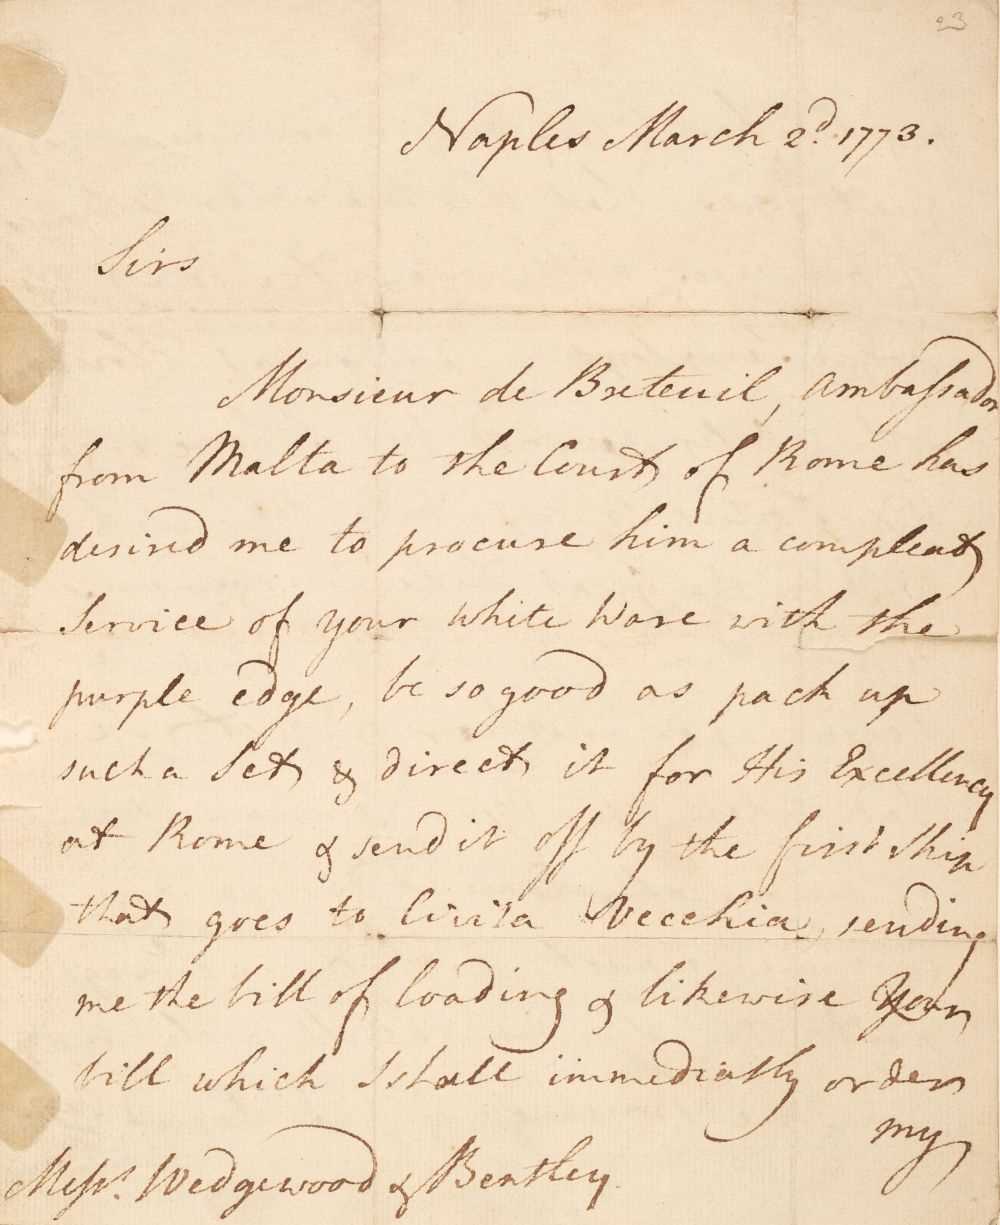 23
Naples March 2d. 1773.
Sirs
Monsieur de Breteuil, Ambassador
from Malta to the Court of Rome has
desired me to procure him a compleat
Service of your white Ware with the
purple edge, be so good as pack up
such a Set & direct it for His Excellency
at Rome & send it off by the first Ship
that goes to Civita Vecchia, sending
me the bill of loading & likewise Your
bill which I shall immediatly order
my
Messrs. Wedgewood & Bentley.